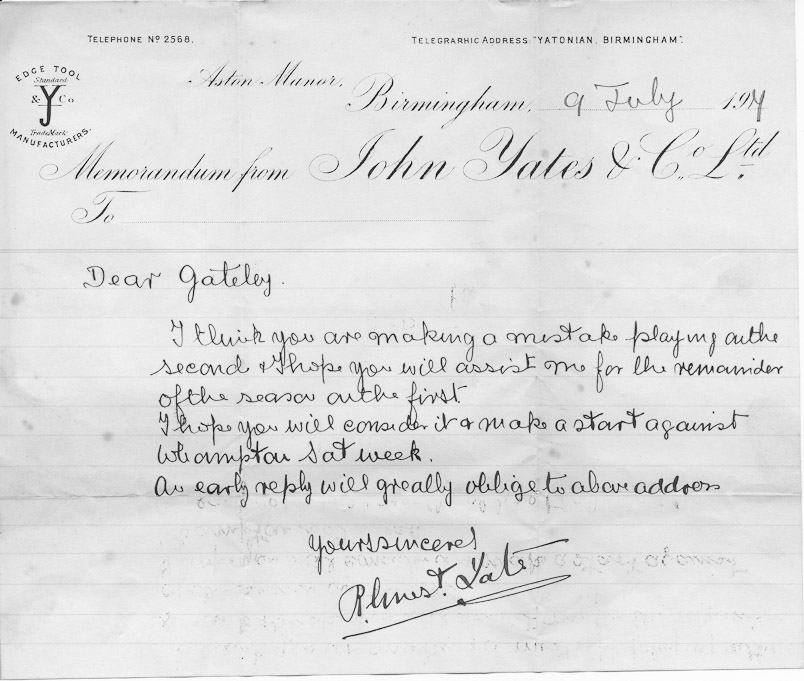 TELEPHONE Nº 2568.
TELEGRARHIC ADDRESS "YATONIAN, BIRMINGHAM".
EDGE TOOL
Standard
& Y Co
Trade Mark
MANUFACTURERS.
Aston Manor,
Birmingham, 9 July 19
Memorandum from John Yates & Co. Ltd.
To
Dear Gateley.
I think you are making a mistake playing on the
second & I hope you will assist me for the remainder
of the season on the first
I hope you will consider it & make a start against
Whampton Sat week.
An early reply will greatly oblige to above address
Yours sincerel
Yate